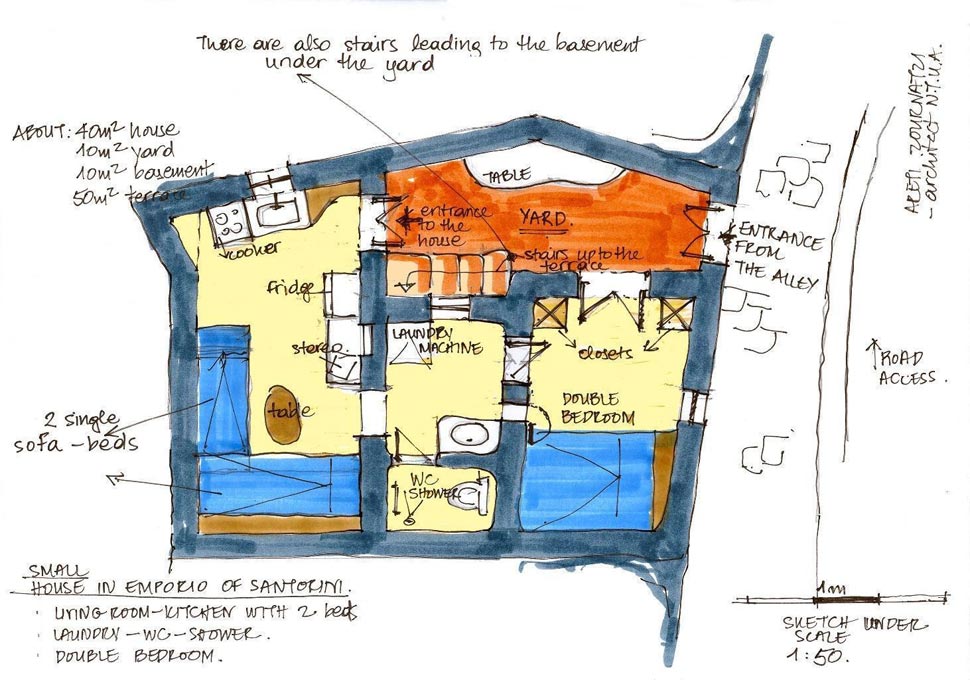 There are also stairs leading to the basement
under the yard
ABOUT: 40m² house
10m² yard
10m² basement
50m² terrace
ARETI ZOURNATZI
- architect N.T.U.A.
TABLE
YARD
entrance
to the
house
ENTRANCE
FROM
THE ALLEY
stairs up to the
terrace
cooker
Fridge
stereo
LAUNDRY
MACHINE
closets
ROAD
ACCESS.
table
DOUBLE
BEDROOM
2 single
sofa-beds
WC
SHOWER
SMALL
HOUSE IN EMPORIO OF SANTORINI.
· LIVING ROOM-KITCHEN WITH 2 beds
· LAUNDRY-WC-SHOWER.
· DOUBLE BEDROOM.
1m
SKETCH UNDER
SCALE
1:50.